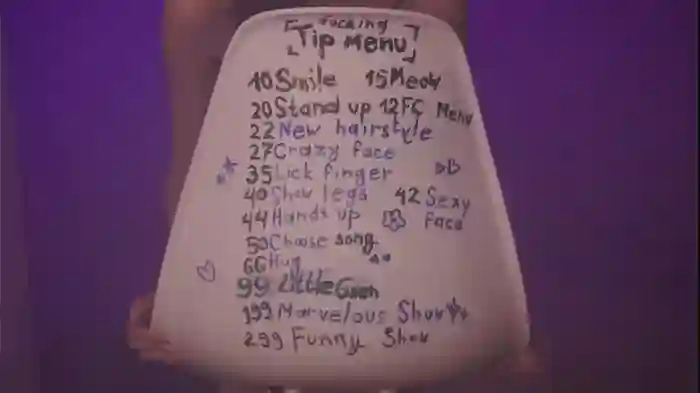 fucking
[Tip Menu]
10 Smile 15 Meow
20 Stand up 12 FC Menu
22 New hairstyle
27 Crazy face
35 Lick finger
40 Show legs 42 Sexy
44 Hands up face
50 Choose song
66 Hug
99 Little
199 Marvelous Show
299 Funny Show